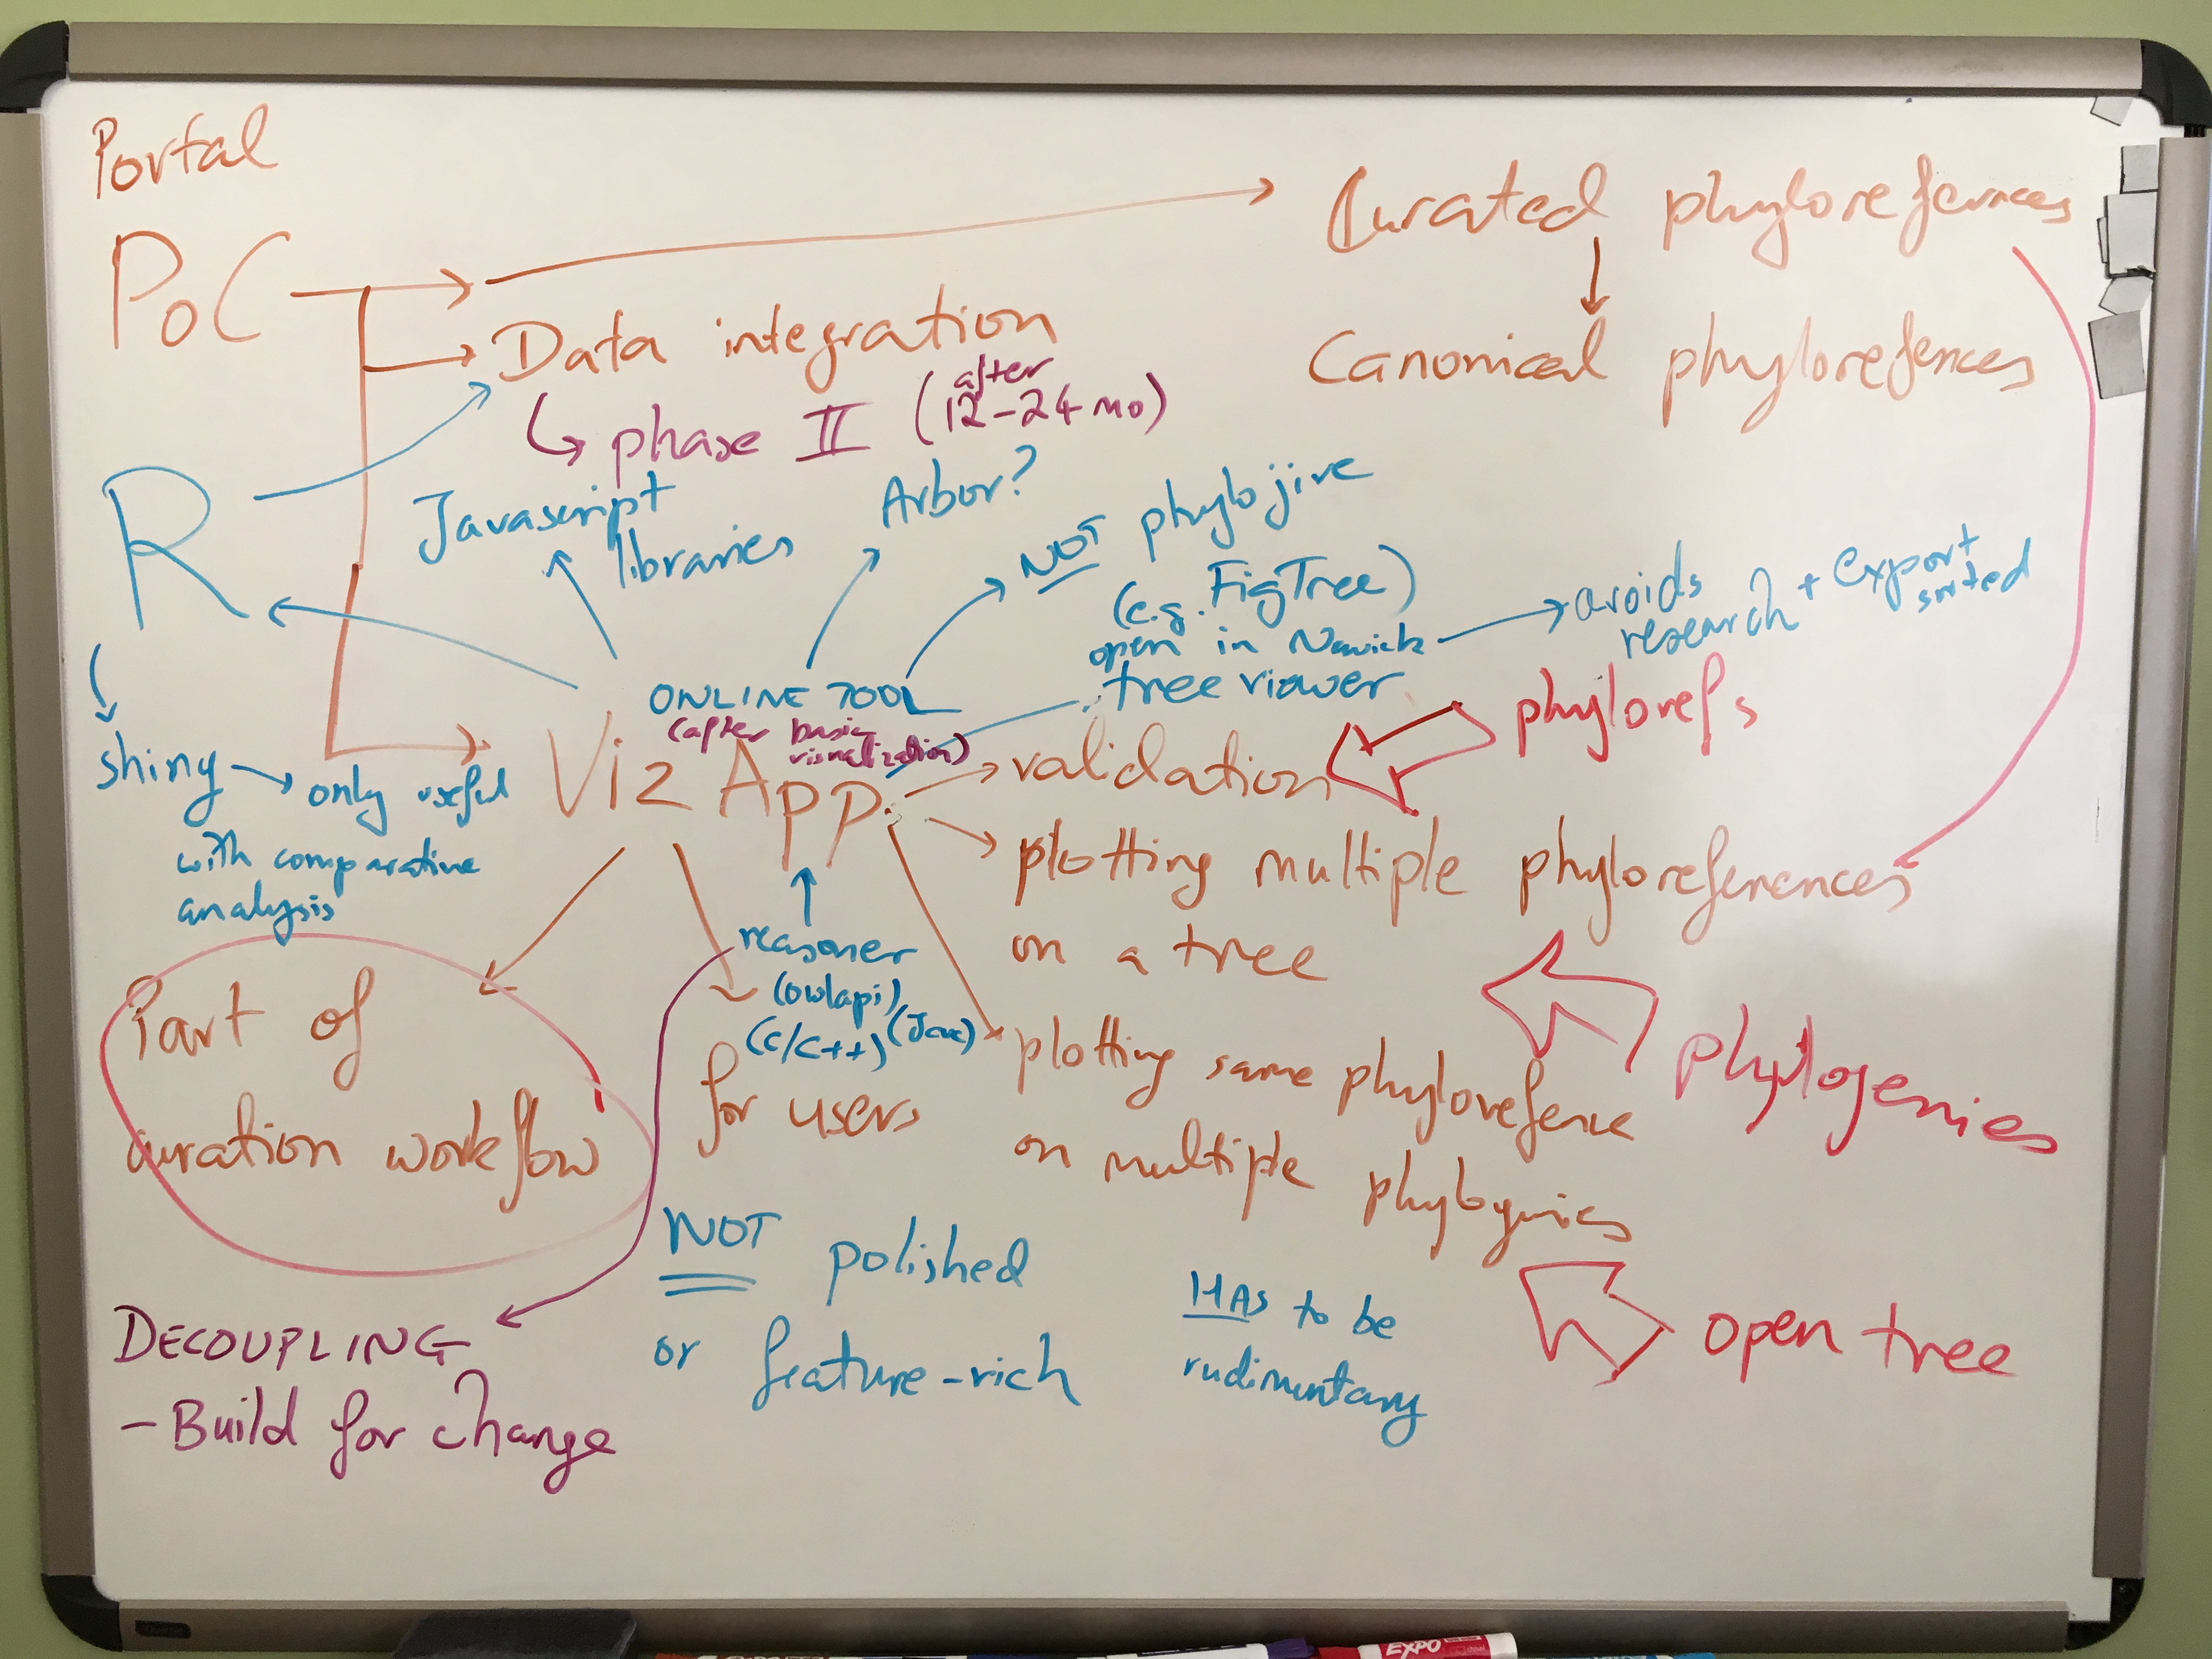 Portal
PoC
Curated phyloreferences
Data integration
Canonical phylorefences
phase II (after 12-24 mo)
R
Javascript
libraries
Arbor?
NOT phylojive
(e.g. FigTree)
open in Newick
tree viewer
avoids
research + export
sorted
ONLINE TOOL
(after basic
visualization)
phylorefs
shiny
only useful
with comparative
analysis
Viz App:
validation
plotting multiple phyloreferences
on a tree
reasoner
(owlapi)
(C/C++) (Java)
Part of
curation workflow
for users
plotting same phylorefence
on multiple phylogenies
phylogenies
NOT polished
or feature-rich
HAS to be
rudimentary
open tree
DECOUPLING
- Build for change
EXPO